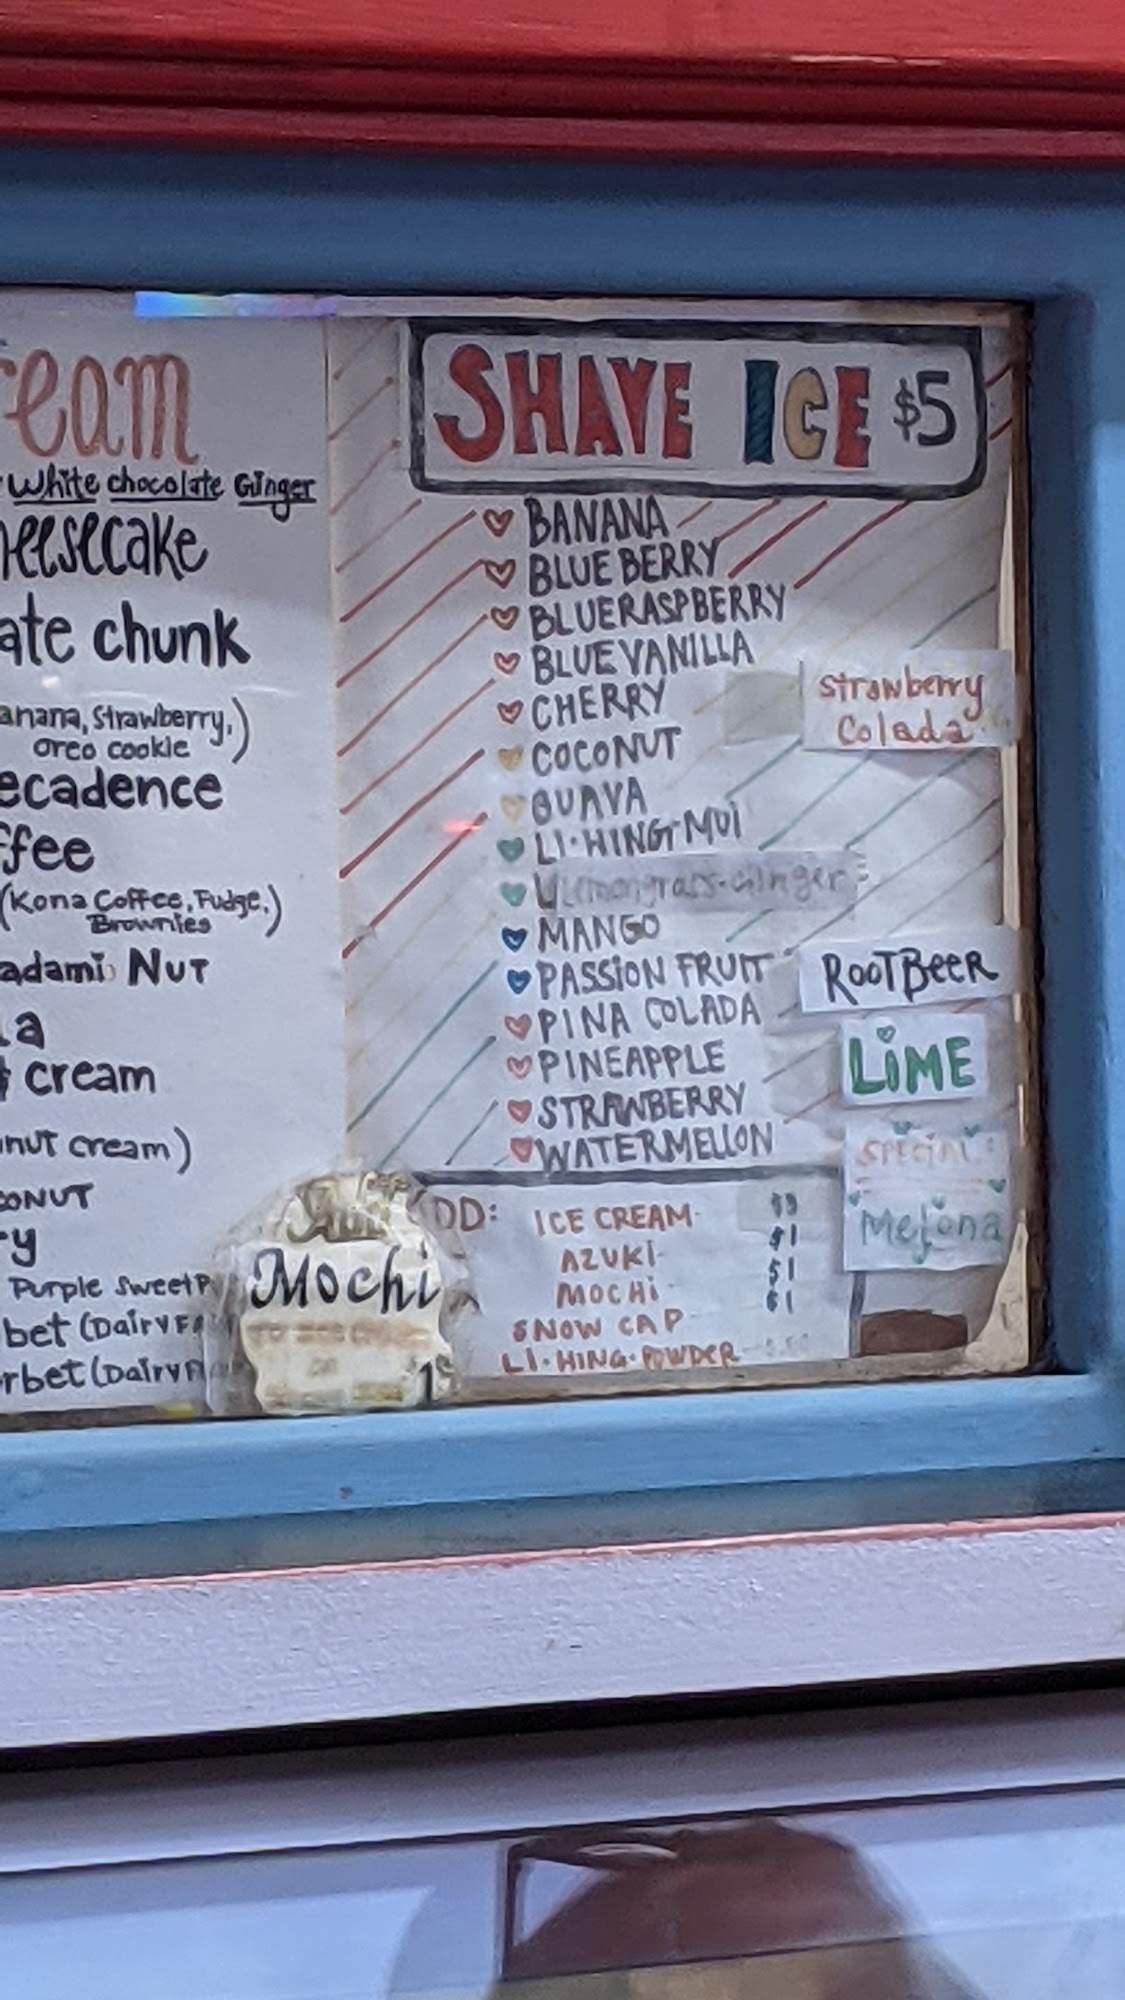 eam
White chocolate Ginger
eesecake
ate chunk
anana, Strawberry,)
oreo cookie
ecadence
ffee
(Kona Coffee, Fudge,)
Brownies
adami NUT
a
cream
nut cream)
ONUT
y
Purple Sweet P
bet (Dairy F
rbet (Dairy F
SHAVE ICE $5
BANANA
BLUE BERRY
BLUERASPBERRY
BLUE VANILLA
CHERRY
COCONUT
GUAVA
LI·HING·MUI
Lemongrass-Ginger
MANGO
PASSION FRUIT
PINA COLADA
PINEAPPLE
STRAWBERRY
WATERMELLON
Strawberry
Colada
ROOTBEER
LIME
SPECIAL:
Melona
DD:
ICE CREAM
AZUKI $1
MOCHI $1
SNOW CAP $1
LI·HING·POWDER
Mochi